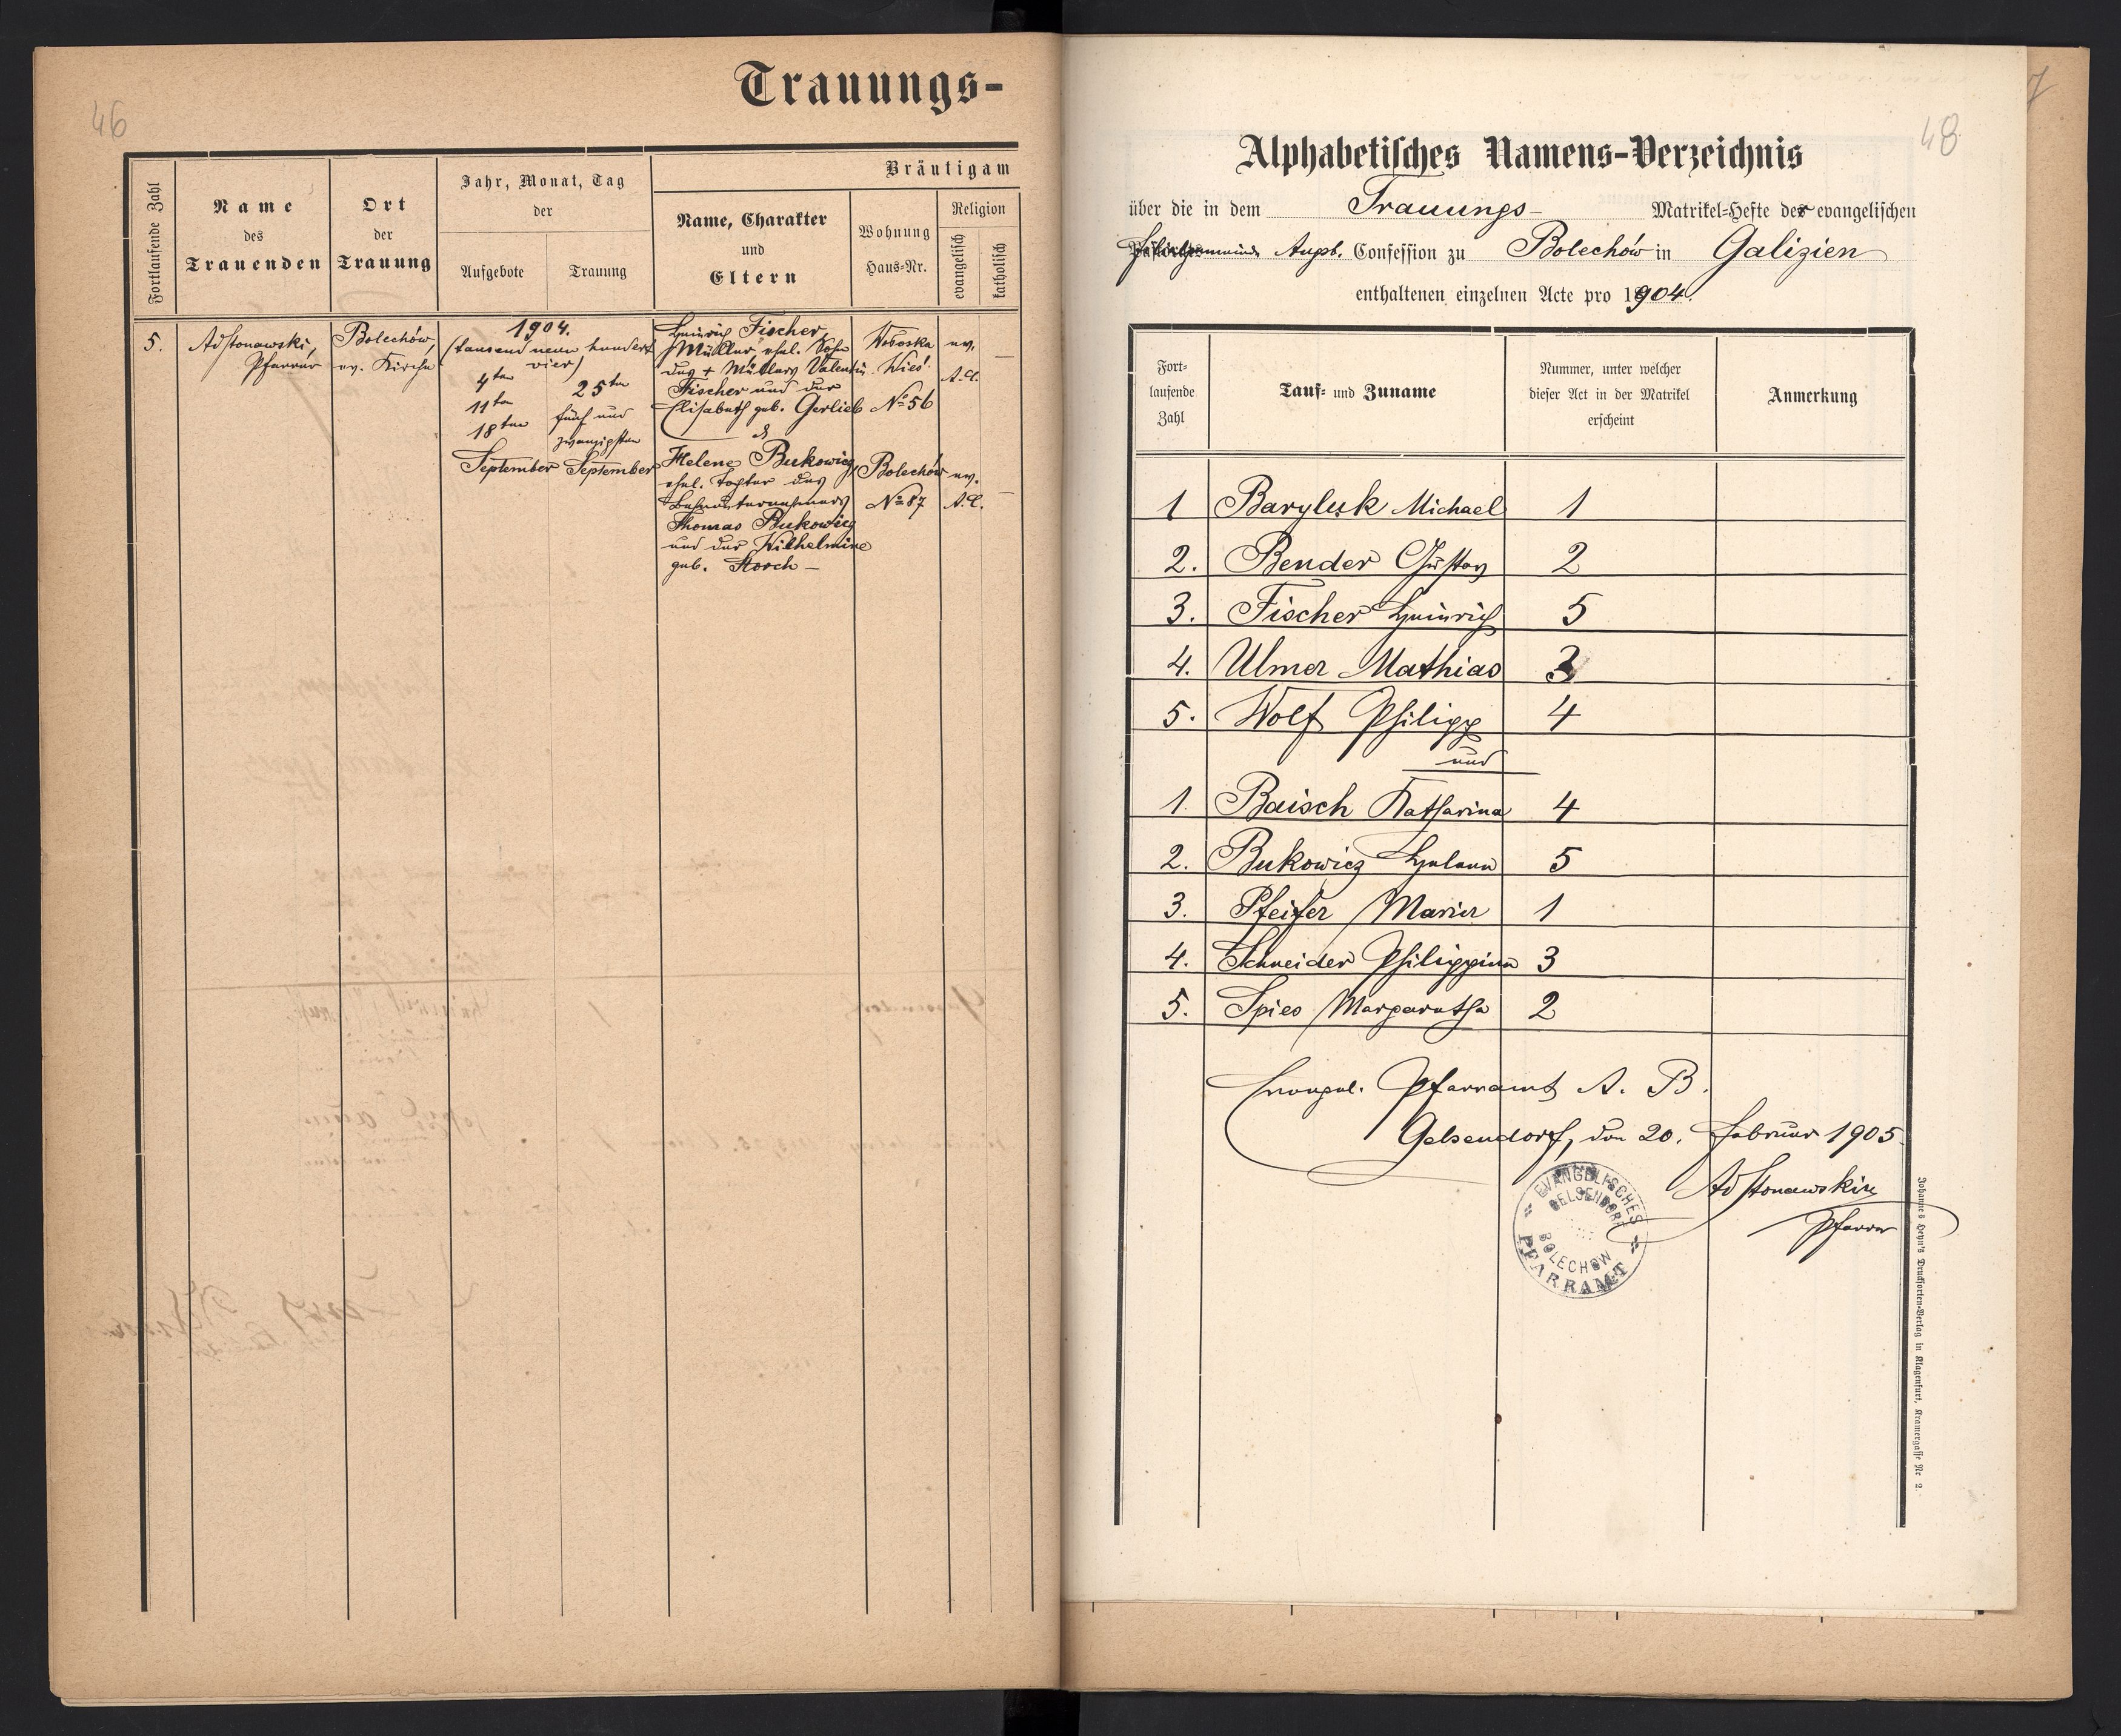 46
Trauungs-
Fortlaufende Zahl
Name
des
Trauenden
Ort
der
Trauung
Jahr, Monat, Tag
der
Aufgebote
Trauung
Bräutigam
Name, Charakter
und
Eltern
Wohnung
Haus-Nr.
Religion
evangelisch
katholisch
5.
Adstonawski,
Pfarrer
Bolechów,
ev. Kirche
1904.
(tausend neun hundert
vier)
4ten
11ten
18ten
September
25ten
fünf und
zwanzigsten
September
Heinrich Fischer,
Müller, ehel. Sohn
des + Müllers Valentin
Fischer und der
Elisabeth geb. Gerlieb
Wołoska
Wieś
No 56
ev.
A.C.
—
&
Helene Bukowicz,
ehel. Tochter des
Thomas Bukowicz
und der Wilhelmine
geb. Storch —
Bolechów
No 87
ev.
A.C.
—
7
48
Alphabetisches Namens-Verzeichnis
über die in dem Trauungs- Matrikel-Hefte der evangelischen
Filialgemeinde Augsb. Confession zu Bolechów in Galizien
enthaltenen einzelnen Acte pro 1904.
Fort-
laufende
Zahl
Tauf- und Zuname
Nummer, unter welcher
dieser Act in der Matrikel
erscheint
Anmerkung
1 Baryluk Michael 1
2. Bender Gustav 2
3. Fischer Heinrich 5
4. Ulmer Mathias 3
5. Wolf Philipp 4
und
1. Baisch Katharina 4
2. Bukowicz Helene 5
3. Pfeifer Marie 1
4. Schneider Philippine 3
5. Spies Margaretha 2
Evangel. Pfarramt A. B.
Gelsendorf, den 20. Februar 1905
Adstonawski
Pfarrer
EVANGELISCHES
GELSENDORF
BOLECHOW
PFARRAMT
Johannes Heyn's Drucksorten-Verlag in Klagenfurt, Kramergasse Nr 2.